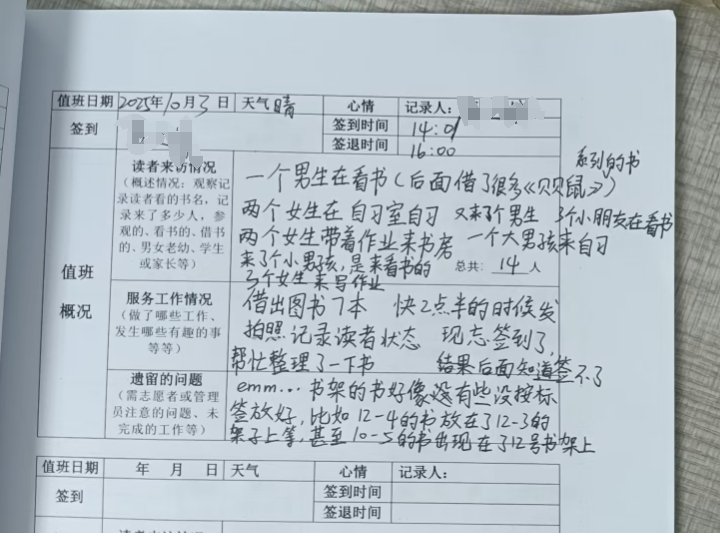 值班日期 2025年10月3日 天气晴 心情 记录人：
签到 签到时间 14:01
签退时间 16:00
值班概况
读者来访情况
（概述情况：观察记录读者看的书名，记录来了多少人，参观的、看书的、借书的、男女老幼、学生或家长等）
系列的书
一个男生在看书（后面借了很多《贝贝鼠》）
两个女生在自习室自习 又来了个男生 3个小朋友在看书
两个女生带着作业来书房 一个大男孩来自习
来了个小男孩，是来看书的 总共：14人
3个女生来写作业
服务工作情况
（做了哪些工作、发生哪些有趣的事等等）
借出图书7本 快2点半的时候发
拍照记录读者状态 现忘签到了，
帮忙整理了一下书 结果后面知道签不了
遗留的问题
（需志愿者或管理员注意的问题、未完成的工作等）
emm... 书架的书好像还有些没按标
签放好，比如12-4的书放在了12-3的
架子上等，甚至10-5的书出现在了12号书架上
值班日期 年 月 日 天气 心情 记录人：
签到 签到时间
签退时间